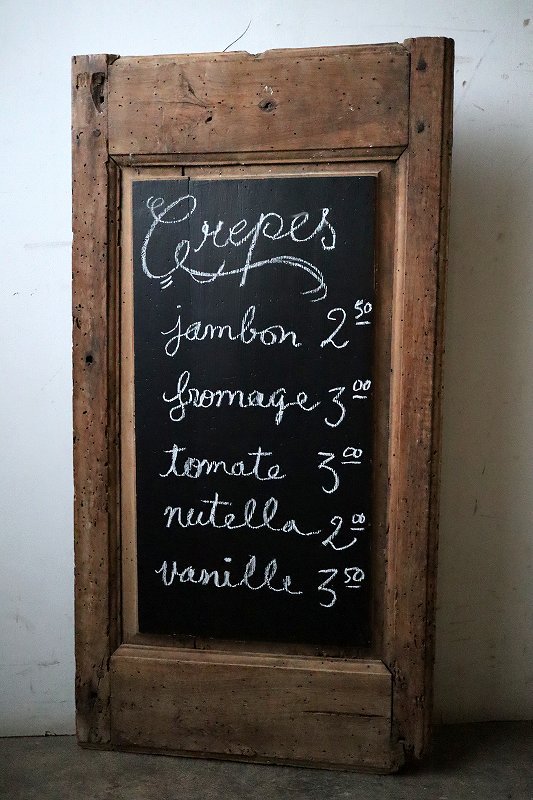 Crepes
jambon 2 50
fromage 3 00
tomate 3 00
nutella 2 00
vanille 3 50